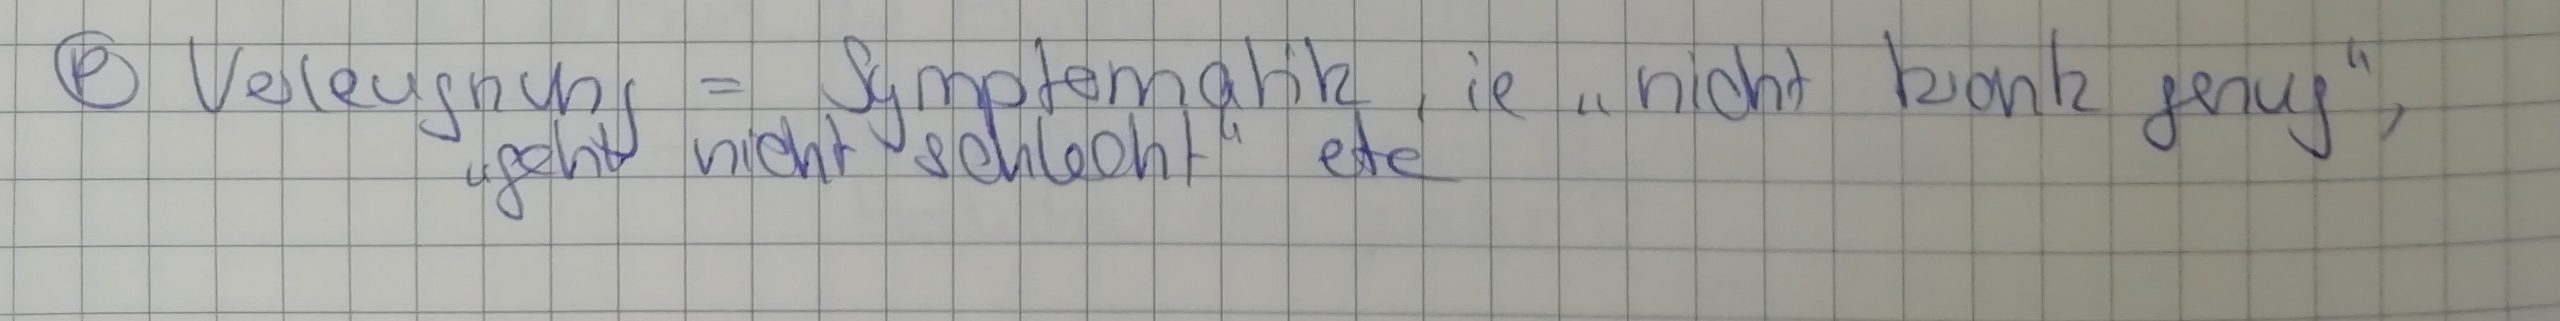 Ⓟ Verleugnung = Symptomatik, ie „nicht krank genug“,
„geht nicht schlecht“ etc